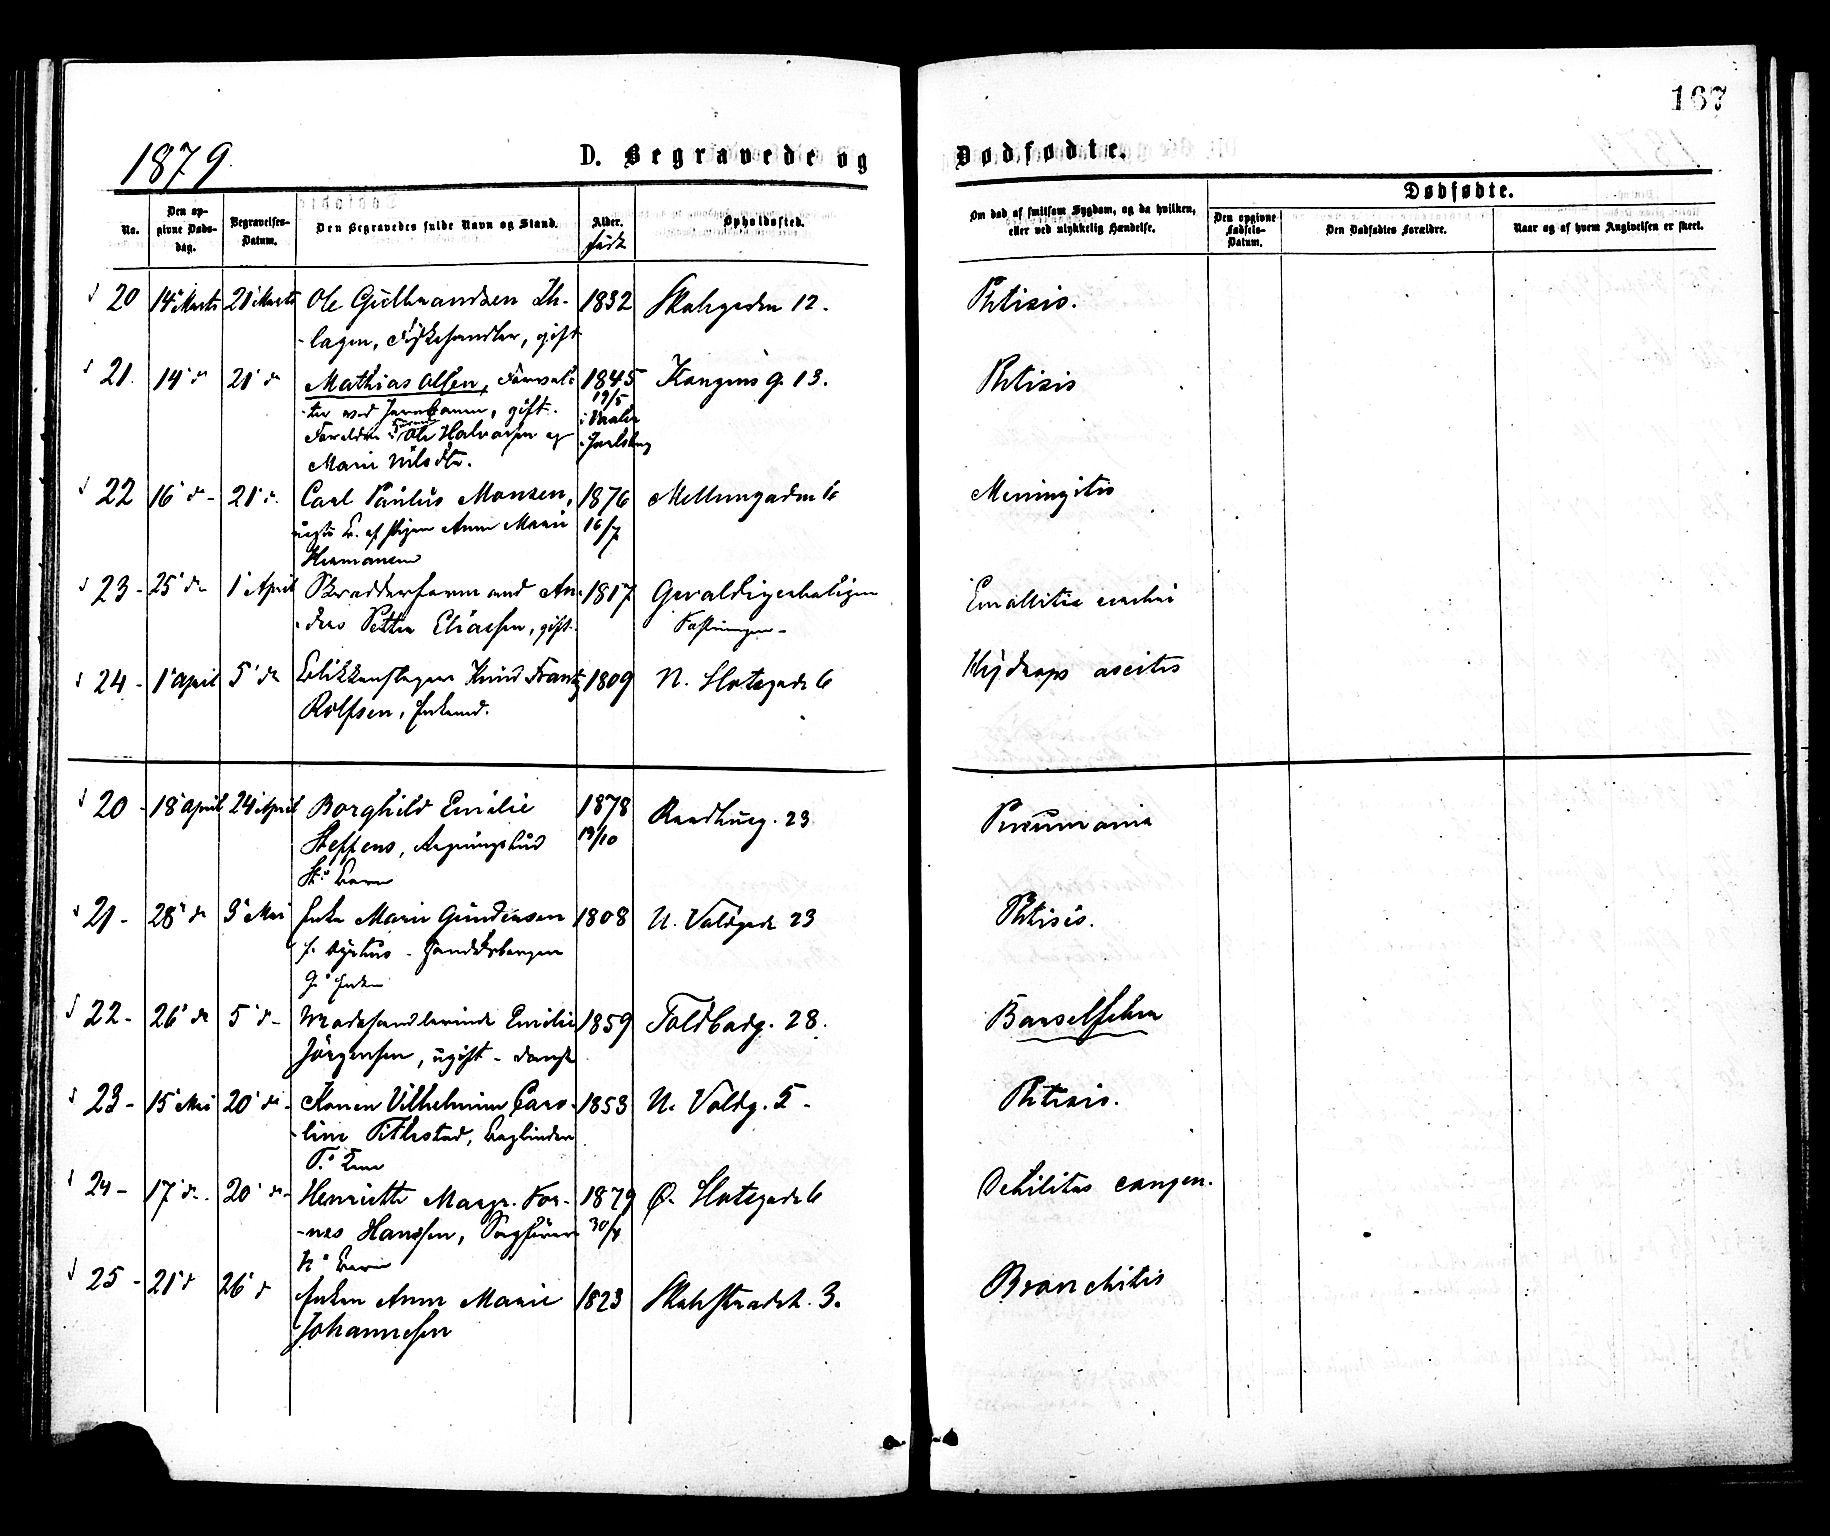 167
1879.
D. Begravede og Dødfødte.
Dødfødte.
No.
Den op-
givne Døds-
dag.
Begravelses-
Datum.
Den Begravedes fulde Navn og Stand.
Alder.
født
Opholdssted.
Om død af smitsom Sygdom, og da hvilken,
eller ved ulykkelig Hændelse.
Den opgivne
Fødsels-
Datum.
Den Dødfødtes Forældre.
Naar og af hvem Angivelsen er skeet.
20 14' Marts 21' Marts Ole Gulbrandsen 1832 12. Phtisis.
-lagen, Fiskehandler, gift
21. 14' d 21' d Mathias Olsen, Forval- 1845 Kongens g. 13. Phtisis
-ter ved Jernbanen, gift. 19/5
Forældre: Ole Halvorsen og Jarlsberg
Marie Nilsdtr.
22 16' d- 21' d. Carl Paulus Monsen, 1876 Mellemgaden 6 Meningitis
uægte B. af Pigen Anne Marie 16/7
Hermansen
23- 25' d 1' April An- 1817
-ders Petter Eliassen, gift. Fæstningen-
24- 1' April 5' d Blikkenslager Knud Frantz 1809 N. Slotsgade 6 Hydrops ascites
Rolfsen, Enkemd.
20- 18' April 24' April Borghild Emilie 1878 Raadhusg. 23 Pneumonia
Steffens, 19/10
St.s Barn
21- 28' d 3' Mai Enke Marie Gundersen 1808 N. Voldgade 23 Phtisis.
G.s Enke
22- 26' d 5' d- Modehandlerinde Emilie 1859 Toldbodg. 28. Barselfeber
Jörgensen, ugift - dansk
23- 15' Mai 20' d- Konen Vilhelmine Caro- 1853 N. Voldg. 5- Phtisis.
-line Bogbinder
24- 17' d-. 20' d- Henriette Margr. 1879 Ø. Slotsgade 6 Debilitas congen.
Hanssen, Sagfører 30/4
H.s Barn
25- 21' d 26' d Enken Anne Marie 1823 3. Bronchitis
Johannesen